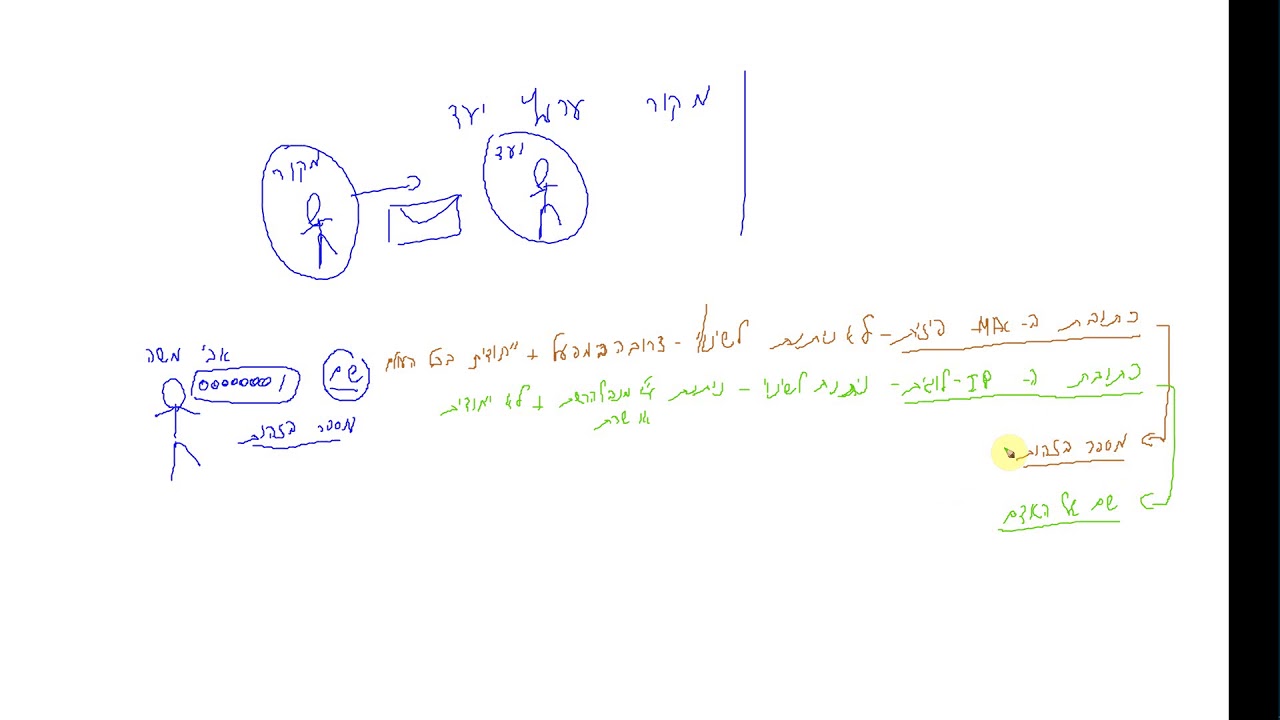 מקור ערוץ יעד
מקור
יעד
כתובת ה-MAC פיזית - לא ניתנת לשינוי - צרובה במפעל + ייחודית בכל העולם
כתובת ה-IP לוגית - ניתנת לשינוי - ניתנת ע"י מנהל הרשת + לא ייחודית
או שרת
מספר הזהות
שם של האדם
אבי משה
שם
000000001
מספר הזהות